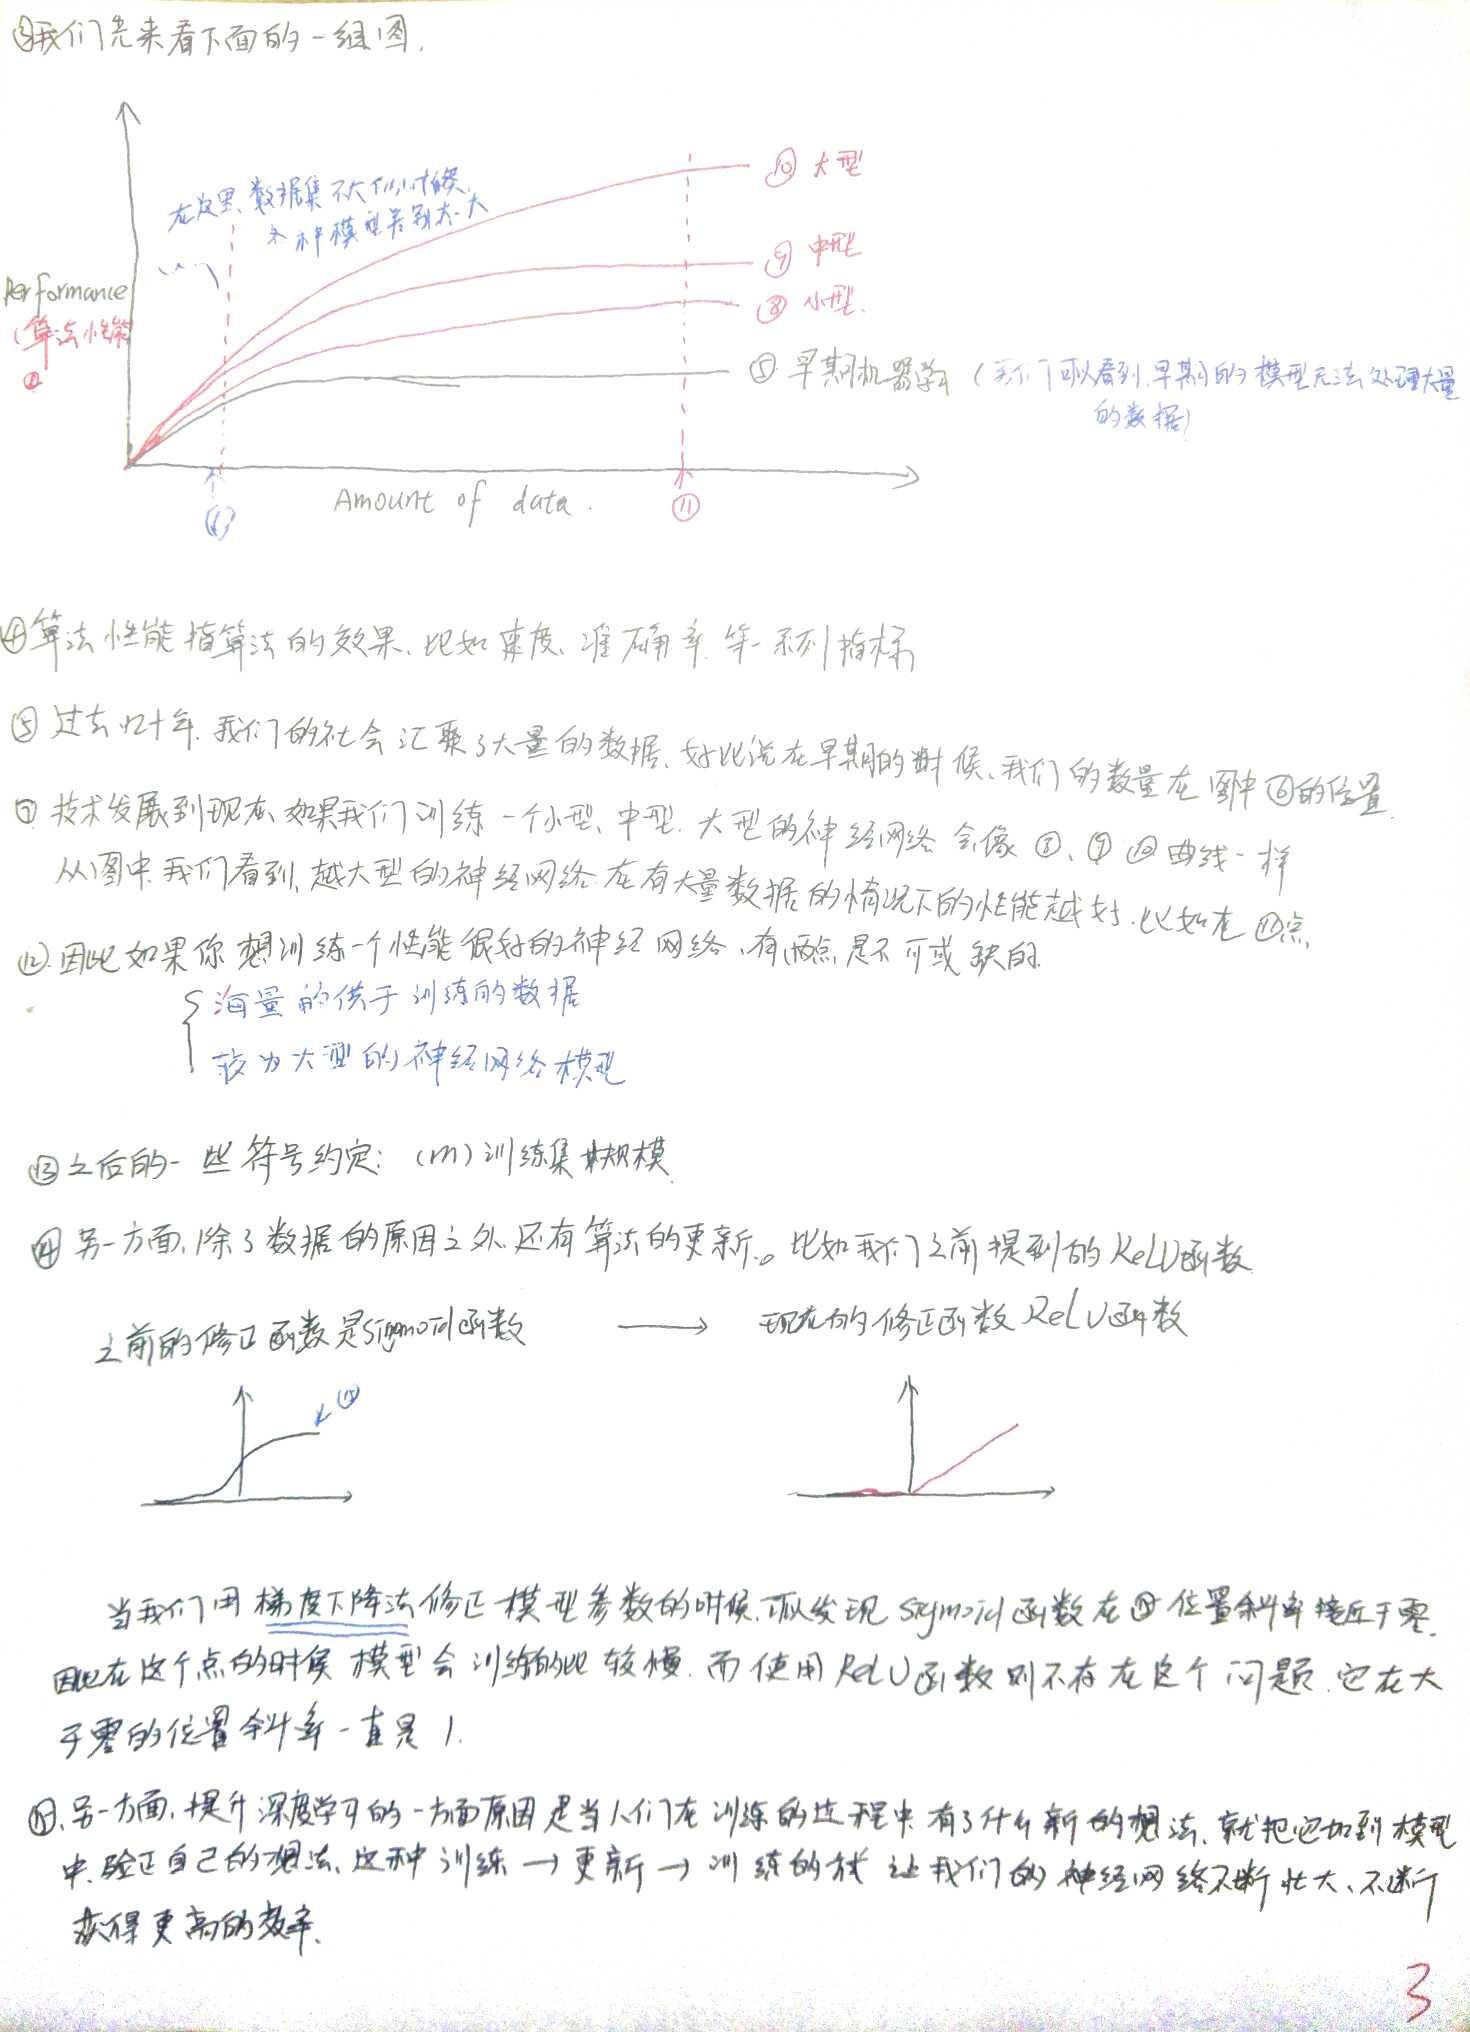 ③我们先来看下面的一组图.
在这里、数据集不大的时候
各种模型差别不大
⑩ 大型
⑨ 中型
⑧ 小型.
Performance
(算法性能
⑤ 早期机器学习 (我们可以看到,早期的模型无法处理大量
的数据)
Amount of data.
⑥
⑪
④算法性能指算法的效果、比如速度、准确率.等一系列指标
⑤ 过去几十年.我们的社会汇聚了大量的数据、好比说在早期的时候、我们的数量在图中⑥的位置.
⑦ 技术发展到现在、如果我们训练一个小型、中型、大型的神经网络会像⑧、⑨ ⑩曲线一样
从图中.我们看到,越大型的神经网络.在有大量数据的情况下的性能越好.比如在⑪点,
⑫.因此如果你想训练一个性能很好的神经网络、有两点是不可或缺的.
海量的供于训练的数据
较为大型的神经网络模型
⑬之后的一些符号约定: (m)训练集规模
⑭ 另一方面,除了数据的原因之外.还有算法的更新。比如我们之前提到的ReLU函数
之前的修正函数是Sigmoid函数 → 现在的修正函数 ReLU函数
⑮
当我们用梯度下降法修正模型参数的时候.可以发现 Sigmoid函数在⑮位置斜率接近于零.
因此在这个点的时候模型会训练的比较慢.而使用ReLU函数则不存在这个问题.它在大
于零的位置斜率一直是1.
另一方面.提升深度学习的一方面原因是当人们在训练的过程中.有了什么新的想法、就把它加到模型
中.验证自己的想法、这种训练→更新→训练的 让我们的神经网络不断壮大、不断
获得更高的效率.
3